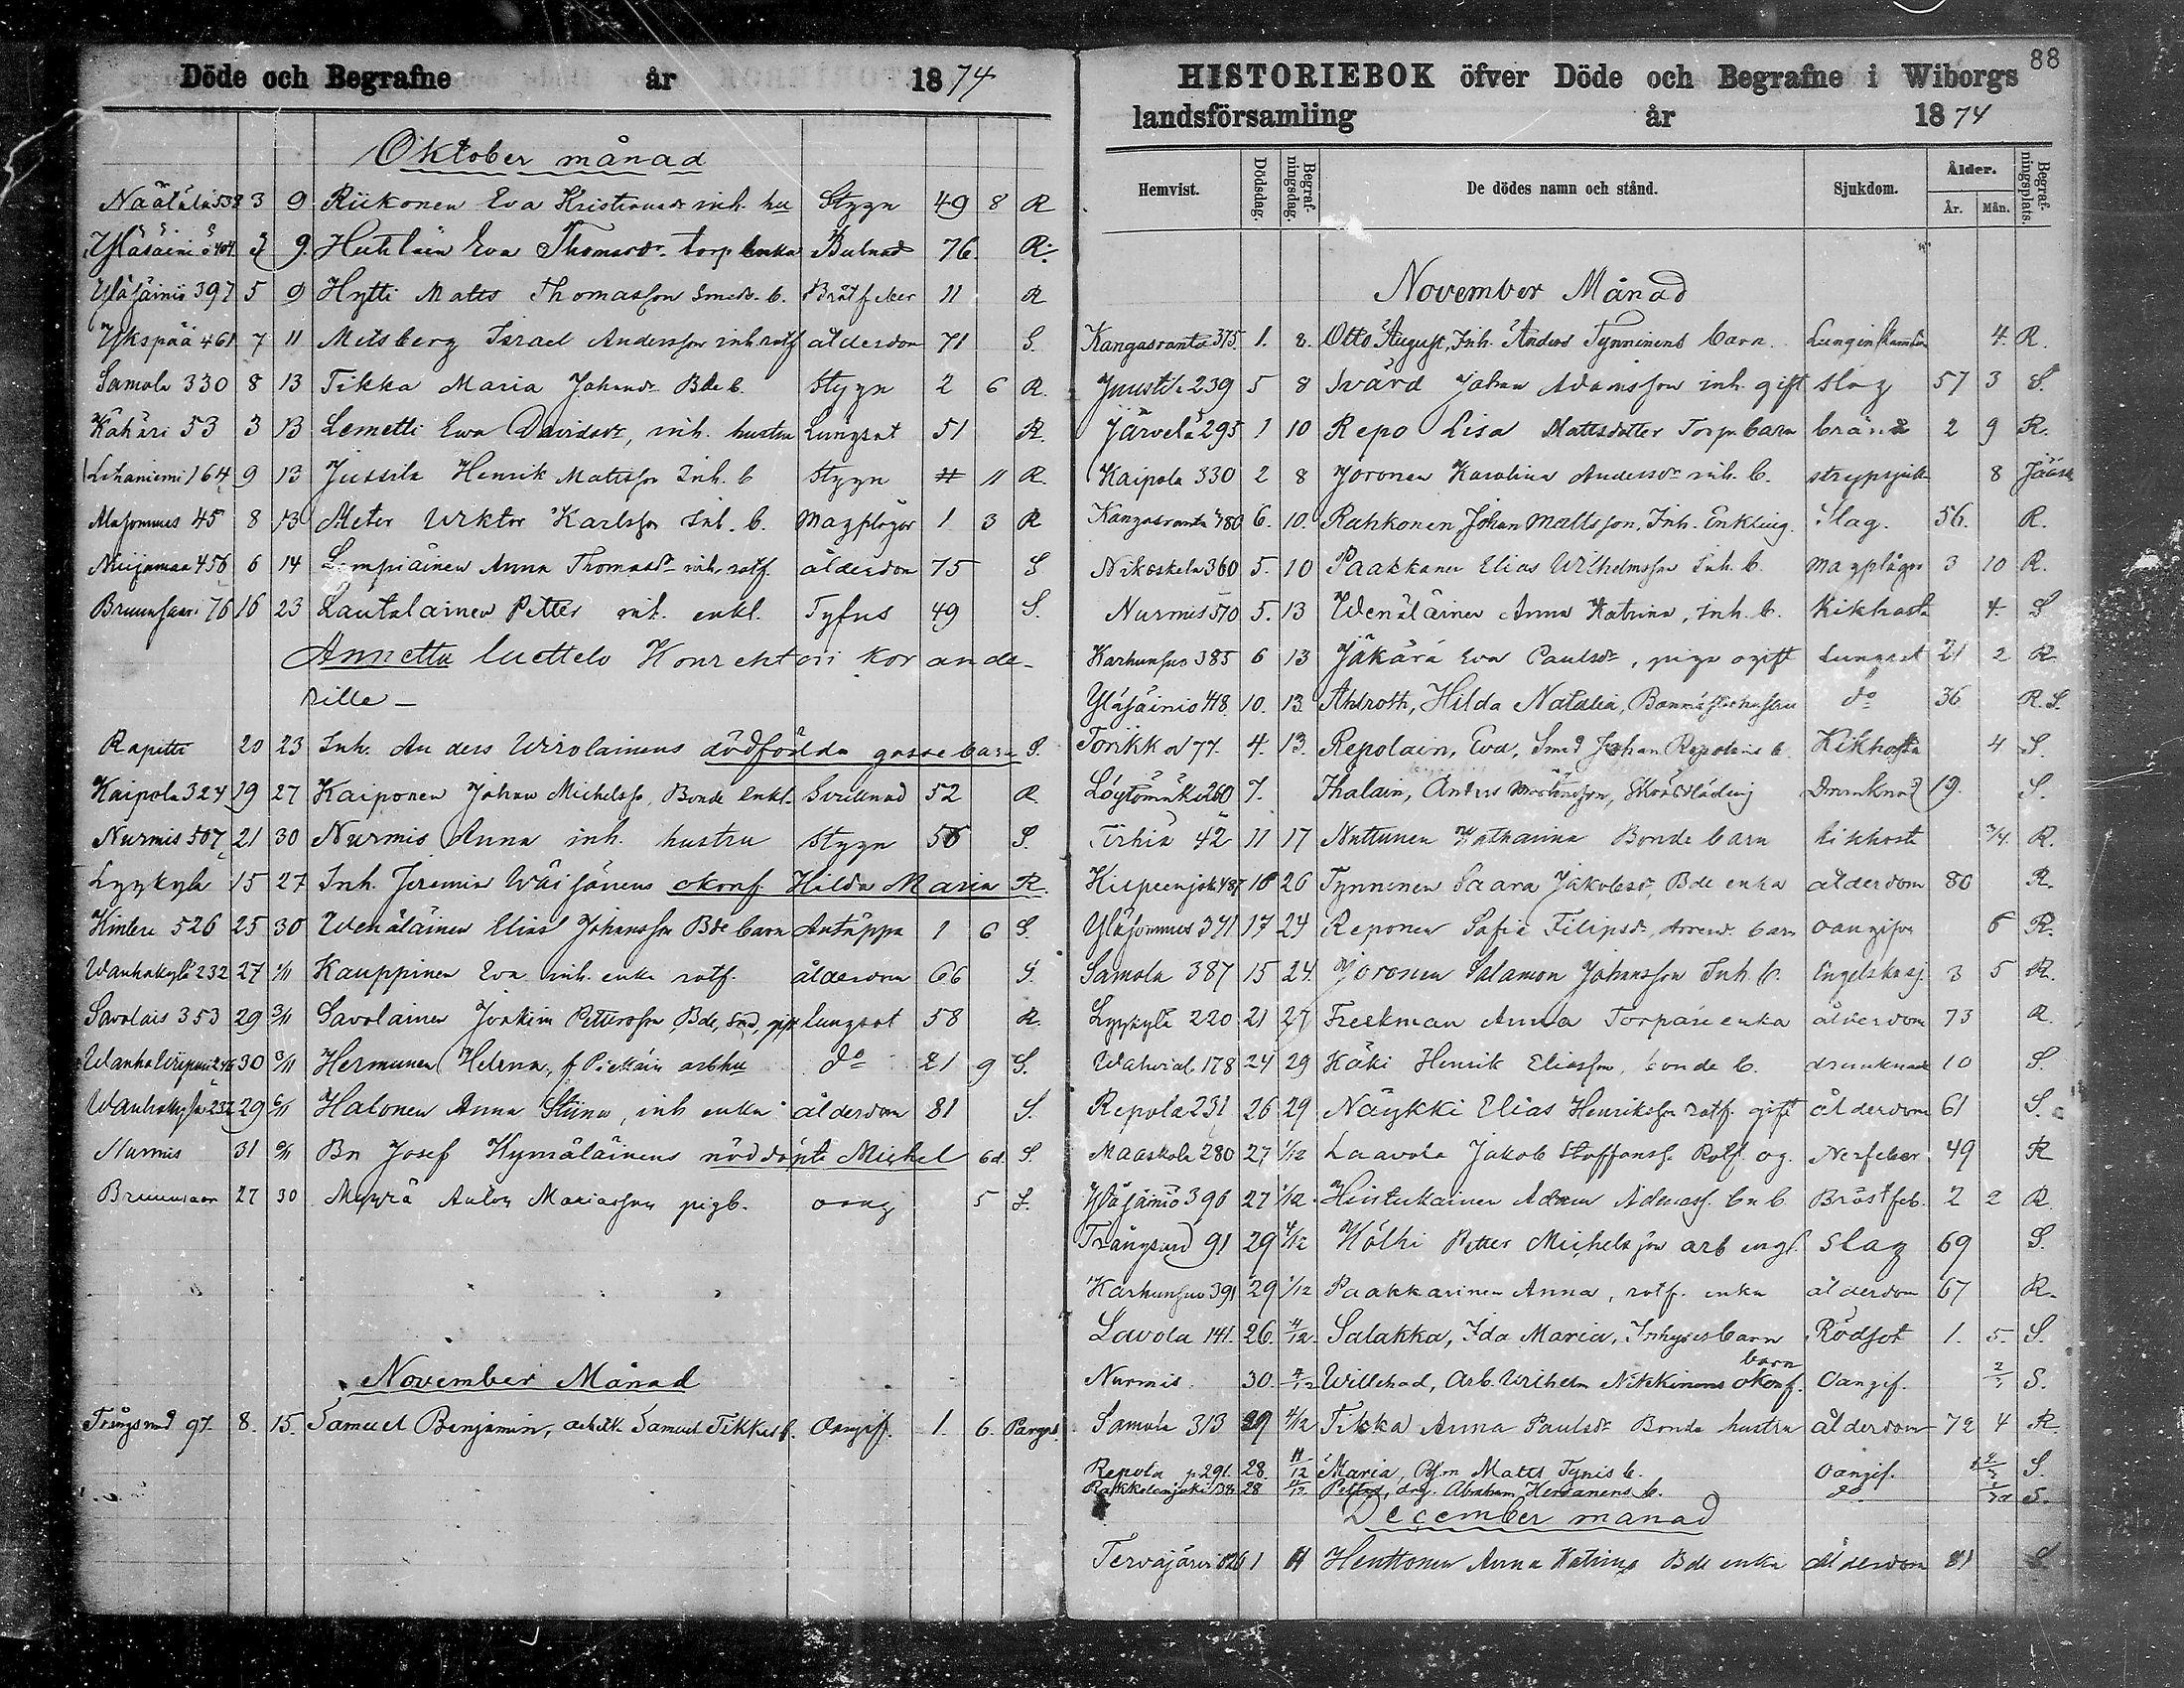 Döde och Begrafne år 1874
Oktober månad
Näätälä 538 3 9 Riikonen Eva Kristiansdr inh. hu Stygn 49 8 R
Yläsäiniö 404 3 9. Huhtain Eva Thomasdr torp enka Bulnad 76 R.
Yläsäiniö 397 5 9 Hytti Matts Thomasson Smeds b. Bröstfeber 11 R
Ykspää 461 7 11 Metsberg Israel Andersson inh. rotf ålderdom 71 S.
Samola 330 8 13 Tikka Maria Johansdr Bde b. Stygn 2 6 R.
Kähäri 53 3 13 Lemetti Ewa Davidsdr, inh. hustru Lungsot 51 R.
Lihaniemi 164 9 13 Jussila Henrik Mattsson Inh. b Stygn 11 R.
Alasommes 45 8 13 Meter Wiktor Karlsson Inh. b. Magplågor 1 3 R
Nuijamaa 456 6 14 Lempiäinen Anna Thomasdr inh. rotf. ålderdom 75 S
Bruunsaari 76 16 23 Lautalainen Petter inh. enkl. Tyfus 49 S.
Annettu luettelo Konrehtori kor ande-
rille –
Rapattila 20 23 Inh. Anders Wirolainens dödfödda gossebarn S.
Kaipola 324 19 27 Kaiponen Johan Michelss, Bonde enkl. Svullnad 52 R.
Nurmis 507 21 30 Nurmis Anna inh. hustru stygn 56 S.
Lyykylä 15 27 Inh. Jeremias Wäisänens okonf. Hilda Maria R.
Hintere 526 25 30 Wenäläinen Elias Johansson Bde barn Antäppa 1 6 S.
Wanhakylä 232 27 1/11 Kauppinen Eva inh. enka rotf. ålderdom 66 S.
Savolais 353 29 3/11 Savolainen Joakim Pettersson, Bde, Snd, gift lungsot 58 R.
Wanha Wiipuri 246 30 8/11 Hermunen Helena, f Pietiäin arbhu do 21 9 S.
Wanhakylä 232 29 6/11 Halonen Anna Stiina, inh enka ålderdom 81 S.
Nurmis 31 Bn Josef Hymäläinens nöddöpte Michel 6d. S.
Bruunsaar 27 30 Myyrä Anton Mariasson pigb. oang 5 S.
November Månad
Trångsund 97. 8. 15. Samuel Benjamin, arbetk. Samuel Tikkas b. Oangif. 1. 6. Pargol.
88
HISTORIEBOK öfver Döde och Begrafne i Wiborgs
landsförsamling år 1874
Hemvist. Dödsdag. Begrafningsdag. De dödes namn och stånd. Sjukdom. Ålder. År. Mån. Begrafningsplats.
November Månad
Kangasranta 375. 1. 8. Otto August, Inh. Anders Tynninens barn. Lunginflammation 4. R.
Juustila 239 5 8 Svärd Johan Adamsson inh. gift slag 57 3 S.
Järvelä 295 1 10 Repo Lisa Mattsdotter Torp. barn bränd 2 9 R.
Kaipola 330 2 8 Joronen Karolina Andersdr inh. b. strypsjuka 8 Jääsk
Kangasranta 780 6. 10. Rahkonen Johan Mattsson, Inh. Enkling. Slag. 56. R.
Nikoskela 360 5. 10 Paakkanen Elias Wilhelmsson Inh. b. Magplågor 3 10 R.
Nurmis 570 5. 13 Wenäläinen Anna Katrina, Inh. b. Kikhosta 4 S
Karhunsuo 385 6 13 Jäkärä Eva Paulsdr, piga ogift Lungsot 21 2 R
Yläsäiniö 418. 10. 13. Ahlroth, Hilda Natalia, Banmästarehustru do 36 R. S.
Torikka 77. 4. 13. Repolain, Eva, Smed Johan Repolains b. Kikhosta 4 S.
Löytömäki 260 7. Ihalain, Anders Mårtensson, Skräddläding Drunknad 19. S.
Tirhiä 42 11 17 Nuttunen Katharina Bonde barn kikhosta 3/4. R.
Kilpeenjoki 487 18 26 Tynninen Saara Jakobsdr Bde enka ålderdom 80 R.
Yläsommes 371 17 24 Reponen Safia Filipsdr, Arrend. barn oangifven 6 R.
Samola 387 15 24. Joronen Salamon Johansson Inh. b. Engelska sj. 3 5 R.
Lyykylä 220 21 27 Freskman Anna Torpare enka ålderdom 73 R.
Watvial 178 24 29 Käki Henrik Eliasson, bonde b. drunknade 10 S.
Repola 231 26 29 Näykki Elias Henriksson rotf. gift ålderdom 61 S.
Maaskola 280 27 1/12 Laavola Jakob Staffanss. Rotf. og. Nerffeber 49 R
Yläsäiniö 396 27 1/12 Hirstukainen Adam Adamss. bn b Bröstfeb. 2 2 R
Trångsund 91 29 4/12 Hölki Petter Michelsson arb engf. slag 69 S.
Karhunsuo 391 29 1/12 Paakkarinen Anna, rotf. enka ålderdom 67 R.
Lavola 141. 26. 4/12. Salakka, Ida Maria, Inhysesbarn Rödsot 1. 5. S.
Nurmis. 30. 4/12 Willehad, Arb. Wilhelm Nikkinens okonf. barn Oangif. S.
Samola 313 29 4/12 Tikka Anna Paulsdr Bonde hustru ålderdom 72 4 R
Repola p 291. 28. 11/12 Maria, Matts Tynis b. Oangif. S.
Rakkolanjoki 28 Petter, drg. Abraham Hersanens b. do S.
December månad
Tervajärvi 1 11 Henttonen Anna Katrina Bde enka ålderdom 81 S